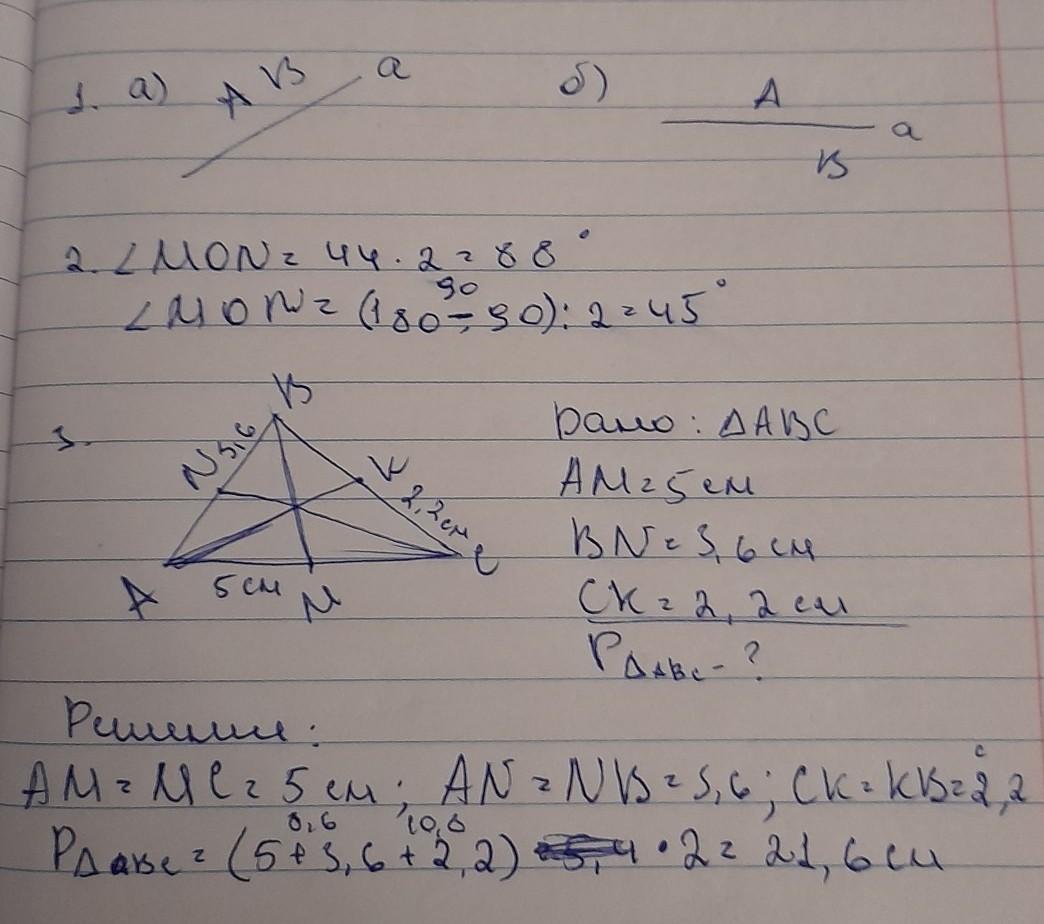 1. а) A B a б) A a B
2. ∠MON = 44 · 2 = 88°
90
∠MON = (180 - 90) : 2 = 45°
3. B Дано: ΔABC
N 3,6 K 2,2 см AM = 5 см
BN = 3,6 см
A 5 см M C CK = 2, 2 см
PΔABC - ?
Решение:
AM = MC = 5 см; AN = NB = 3,6; CK = KB = 2,2
8,6 10,8
PΔABC = (5 + 3,6 + 2,2) · 2 = 21,6 см